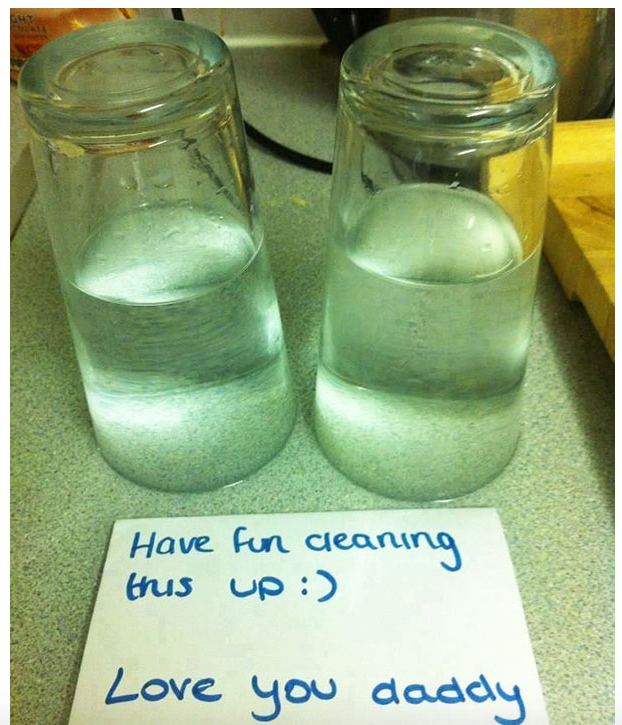 GHT
Have fun cleaning
this up :)
Love you daddy